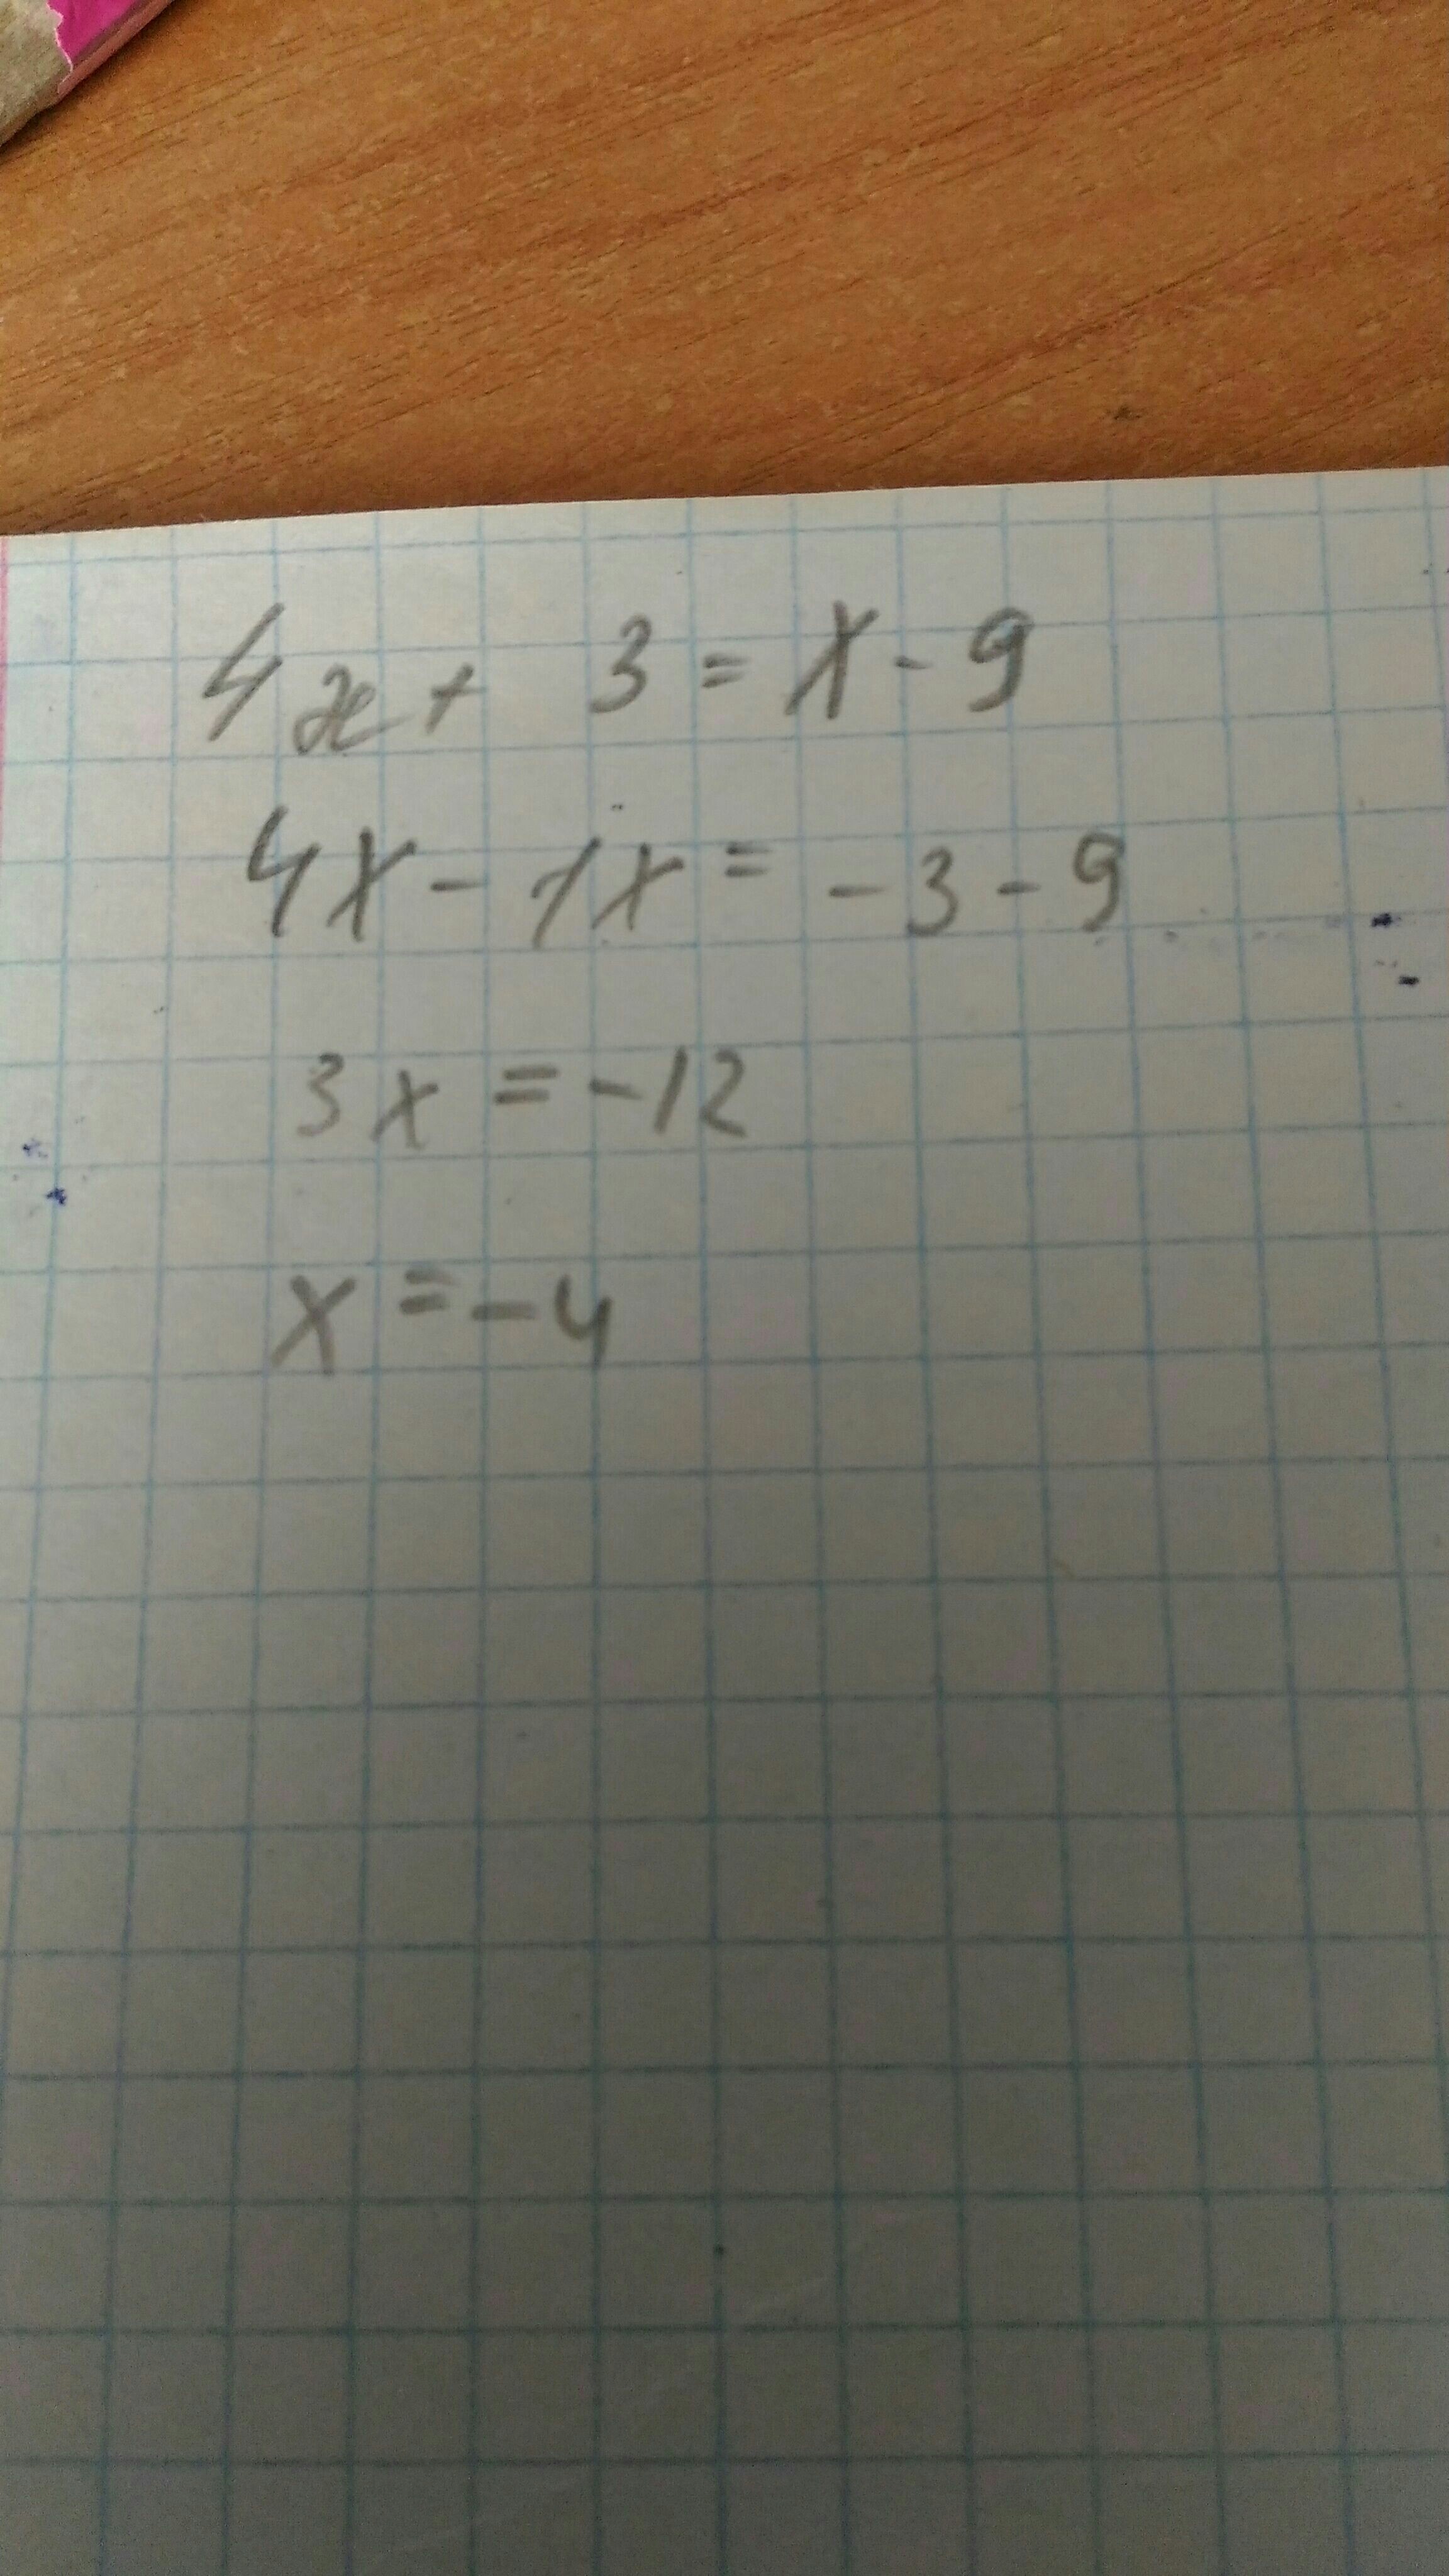 4x + 3 = x - 9
4x - 1x = -3 - 9
3x = -12
x = -4